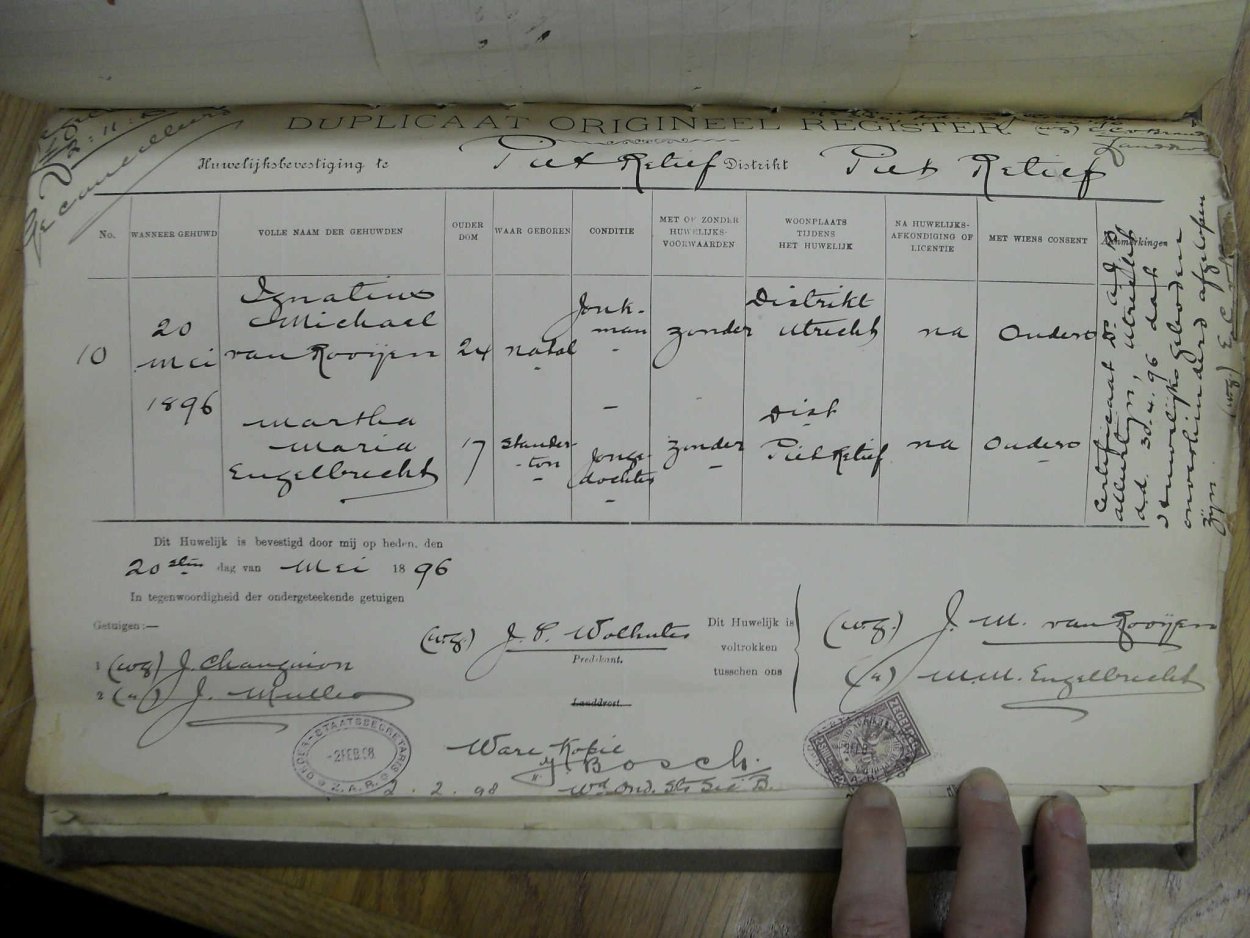 DUPLICAAT ORIGINEEL REGISTER.
Huwelijksbevestiging te Piet Retief Distrikt Piet Retief
No.
WANNEER GEHUWD
VOLLE NAAM DER GEHUWDEN
OUDER
DOM
WAAR GEBOREN
CONDITIE
MET OF ZONDER
HUWELIJKS-
VOORWAARDEN
WOONPLAATS
TIJDENS
HET HUWELIJK
NA HUWELIJKS-
AFKONDIGING OF
LICENTIE
MET WIENS CONSENT
Aanmerkingen
10
20
Mei
1896
Ignatius
Michael
van Rooijen
24
natal
Jonk-
man
zonder
Distrikt
Utrecht
na
Ouders
Martha
Maria
Engelbrecht
17
Stander-
ton
Jonge
dochter
zonder
Dist
Piet Retief
na
Ouders
Certificaat
Utrecht
dd. 30.4.96 dat
huwelijksgeboden
onverhinderd afgelopen
zijn. (wg)
Dit Huwelijk is bevestigd door mij op heden, den
20sten dag van Mei 1896
In tegenwoordigheid der ondergeteekende getuigen
Getuigen:—
1 (wg) J. Changuion
2 (") J. Muller
(wg.) J. P. Wolhuter
Predikant.
Landdrost.
Dit Huwelijk is
voltrokken
tusschen ons
(wg.) J. M. van Rooijen
(") M. M. Engelbrecht
ONDER-STAATSSECRETARIS
-2 FEB. 98
Z.A.R.
Ware Kopie
Bosch.
2.2.98 Wd Ond. Sts Sec B.
ZEGEL